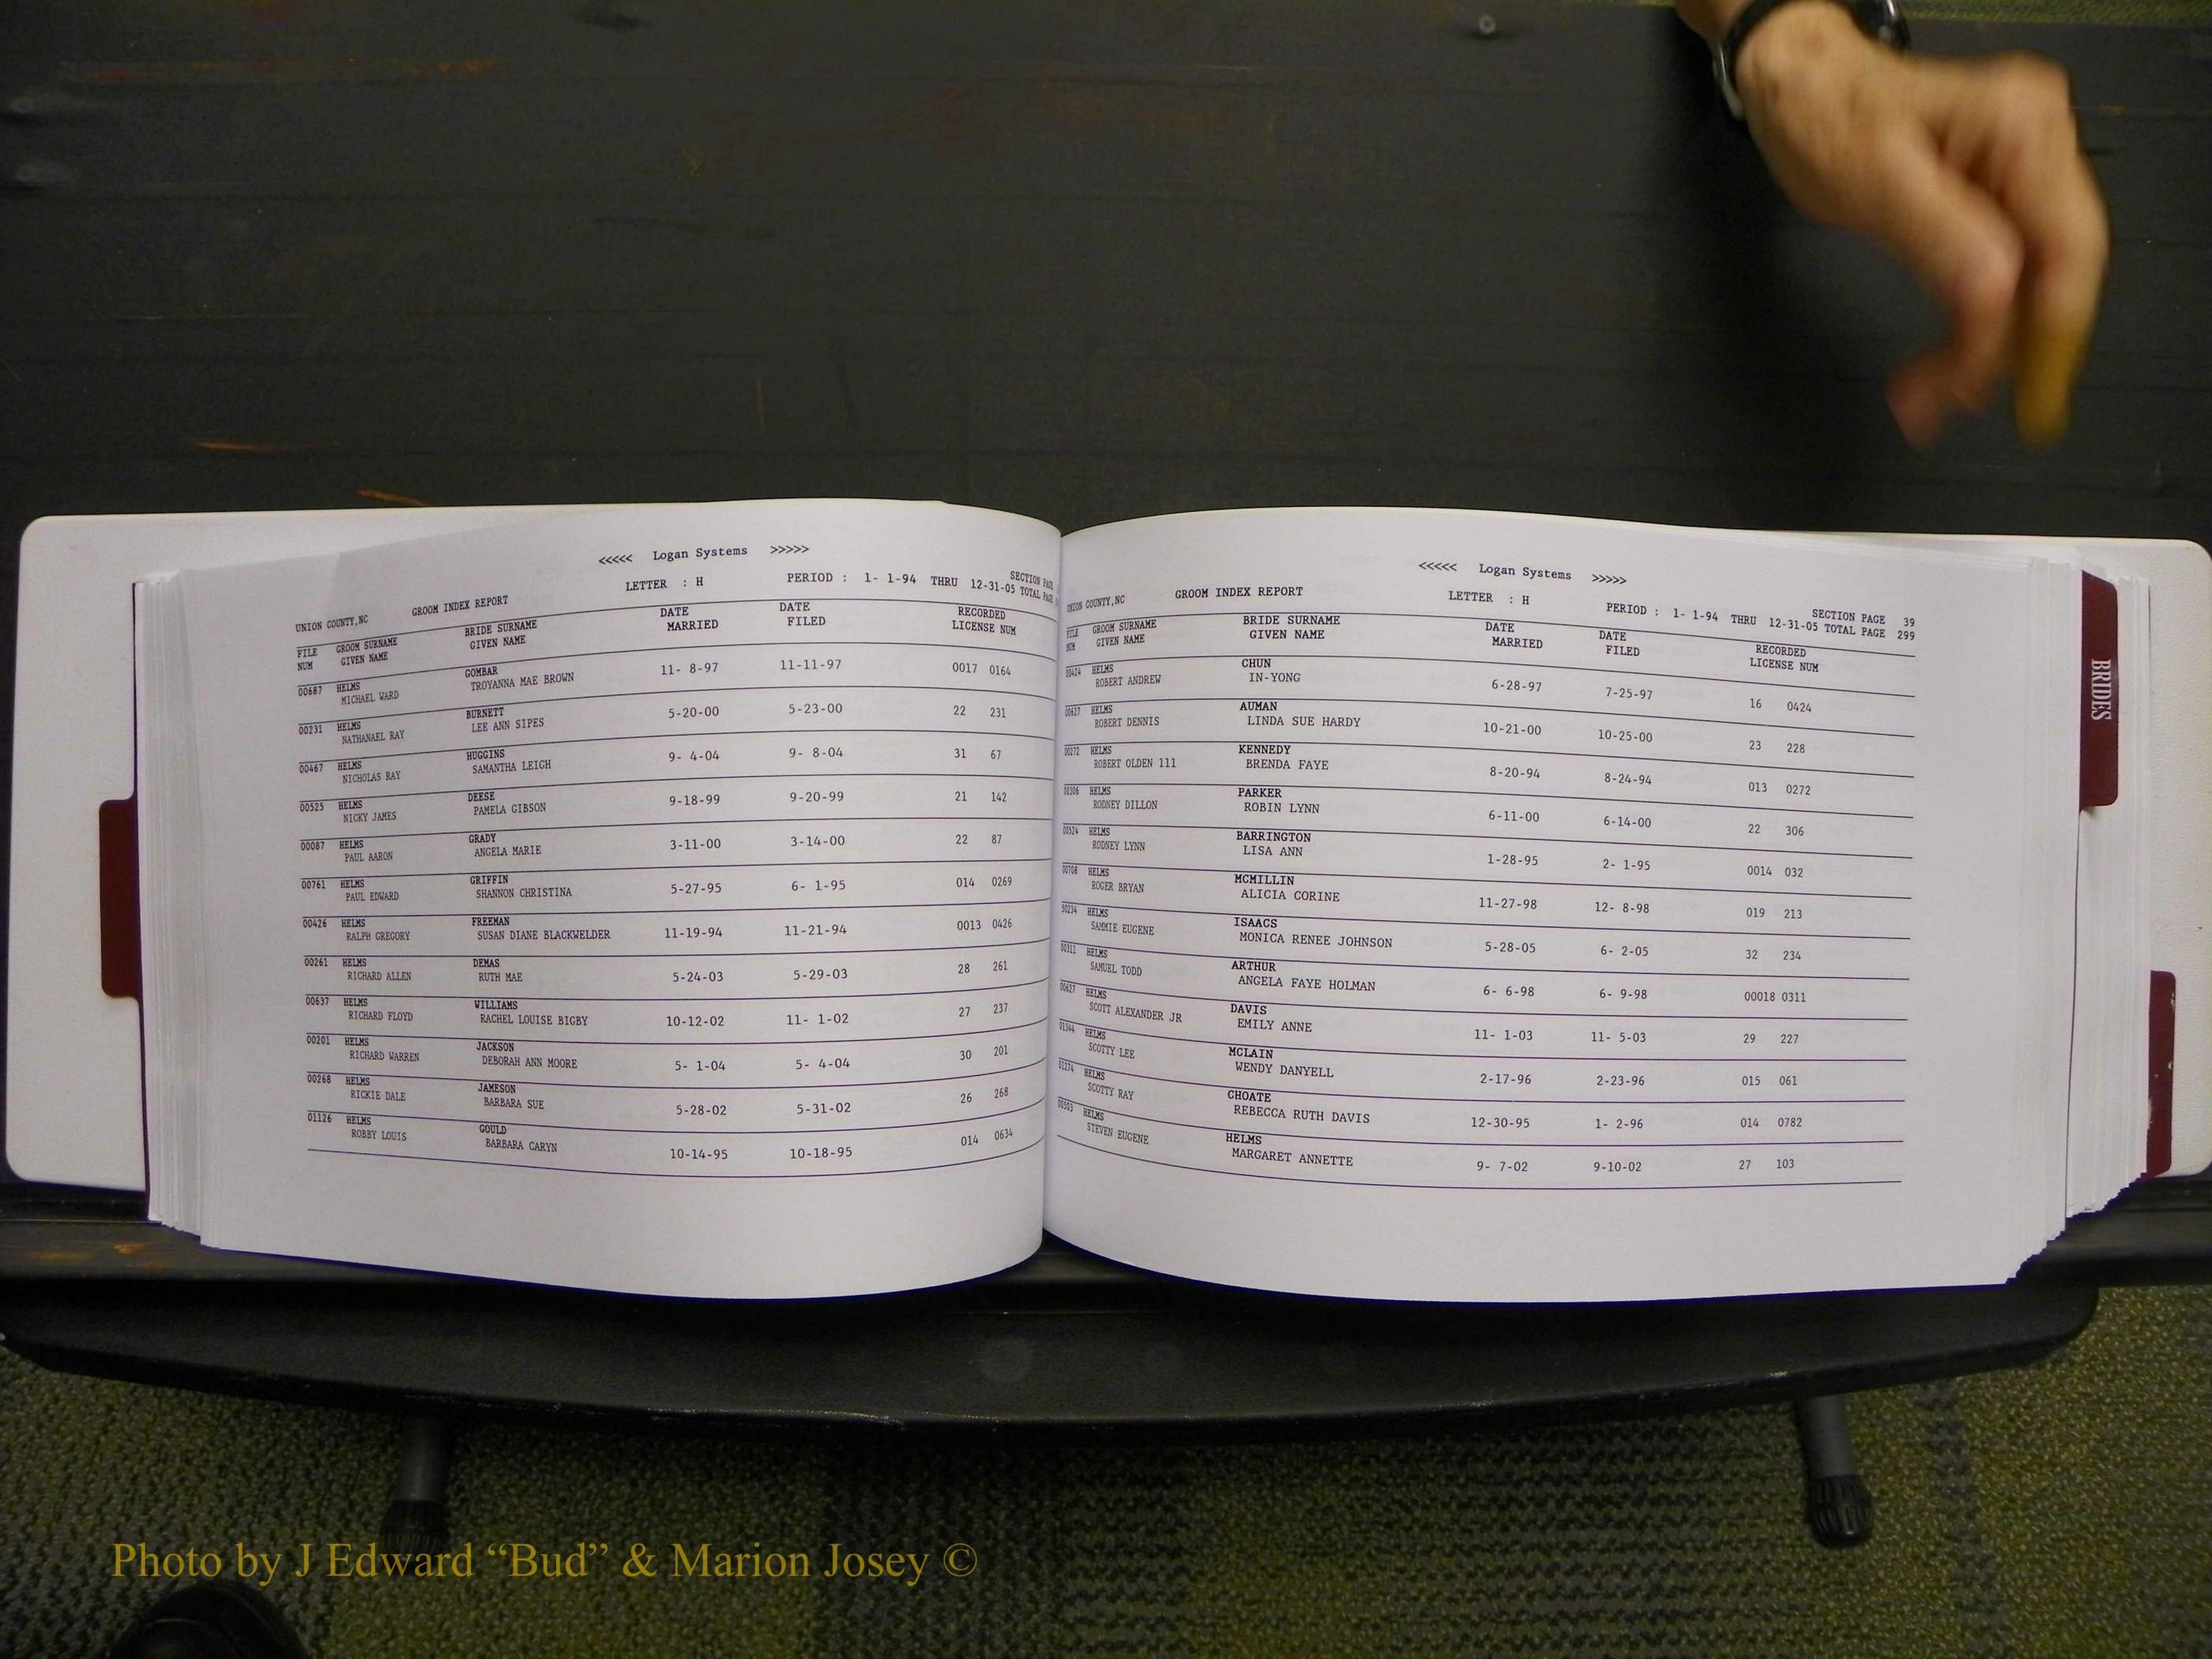 <<<<< Logan Systems >>>>>
UNION COUNTY,NC GROOM INDEX REPORT LETTER : H PERIOD : 1- 1-94 THRU 12-31-05 SECTION PAGE
TOTAL PAGE
FILE GROOM SURNAME BRIDE SURNAME DATE DATE RECORDED
NUM GIVEN NAME GIVEN NAME MARRIED FILED LICENSE NUM
00687 HELMS GOMBAR 11- 8-97 11-11-97 0017 0164
MICHAEL WARD TROYANNA MAE BROWN
00231 HELMS BURNETT 5-20-00 5-23-00 22 231
NATHANAEL RAY LEE ANN SIPES
00467 HELMS HUGGINS 9- 4-04 9- 8-04 31 67
NICHOLAS RAY SAMANTHA LEIGH
00525 HELMS DEESE 9-18-99 9-20-99 21 142
NICKY JAMES PAMELA GIBSON
00087 HELMS GRADY 3-11-00 3-14-00 22 87
PAUL AARON ANGELA MARIE
00761 HELMS GRIFFIN 5-27-95 6- 1-95 014 0269
PAUL EDWARD SHANNON CHRISTINA
00426 HELMS FREEMAN 11-19-94 11-21-94 0013 0426
RALPH GREGORY SUSAN DIANE BLACKWELDER
00261 HELMS DEMAS 5-24-03 5-29-03 28 261
RICHARD ALLEN RUTH MAE
00637 HELMS WILLIAMS 10-12-02 11- 1-02 27 237
RICHARD FLOYD RACHEL LOUISE BIGBY
00201 HELMS JACKSON 5- 1-04 5- 4-04 30 201
RICHARD WARREN DEBORAH ANN MOORE
00268 HELMS JAMESON 5-28-02 5-31-02 26 268
RICKIE DALE BARBARA SUE
01126 HELMS GOULD 10-14-95 10-18-95 014 0634
ROBBY LOUIS BARBARA CARYN
<<<<< Logan Systems >>>>>
UNION COUNTY,NC GROOM INDEX REPORT LETTER : H PERIOD : 1- 1-94 THRU 12-31-05 SECTION PAGE 39
TOTAL PAGE 299
FILE GROOM SURNAME BRIDE SURNAME DATE DATE RECORDED
NUM GIVEN NAME GIVEN NAME MARRIED FILED LICENSE NUM
00424 HELMS CHUN 6-28-97 7-25-97 16 0424
ROBERT ANDREW IN-YONG
00627 HELMS AUMAN 10-21-00 10-25-00 23 228
ROBERT DENNIS LINDA SUE HARDY
00272 HELMS KENNEDY 8-20-94 8-24-94 013 0272
ROBERT OLDEN 111 BRENDA FAYE
00306 HELMS PARKER 6-11-00 6-14-00 22 306
RODNEY DILLON ROBIN LYNN
00524 HELMS BARRINGTON 1-28-95 2- 1-95 0014 032
RODNEY LYNN LISA ANN
00708 HELMS MCMILLIN 11-27-98 12- 8-98 019 213
ROGER BRYAN ALICIA CORINE
50234 HELMS ISAACS 5-28-05 6- 2-05 32 234
SAMMIE EUGENE MONICA RENEE JOHNSON
00311 HELMS ARTHUR 6- 6-98 6- 9-98 00018 0311
SAMUEL TODD ANGELA FAYE HOLMAN
00627 HELMS DAVIS 11- 1-03 11- 5-03 29 227
SCOTT ALEXANDER JR EMILY ANNE
01344 HELMS MCLAIN 2-17-96 2-23-96 015 061
SCOTTY LEE WENDY DANYELL
01274 HELMS CHOATE 12-30-95 1- 2-96 014 0782
SCOTTY RAY REBECCA RUTH DAVIS
00503 HELMS HELMS 9- 7-02 9-10-02 27 103
STEVEN EUGENE MARGARET ANNETTE
BRIDES
Photo by J Edward “Bud” & Marion Josey ©